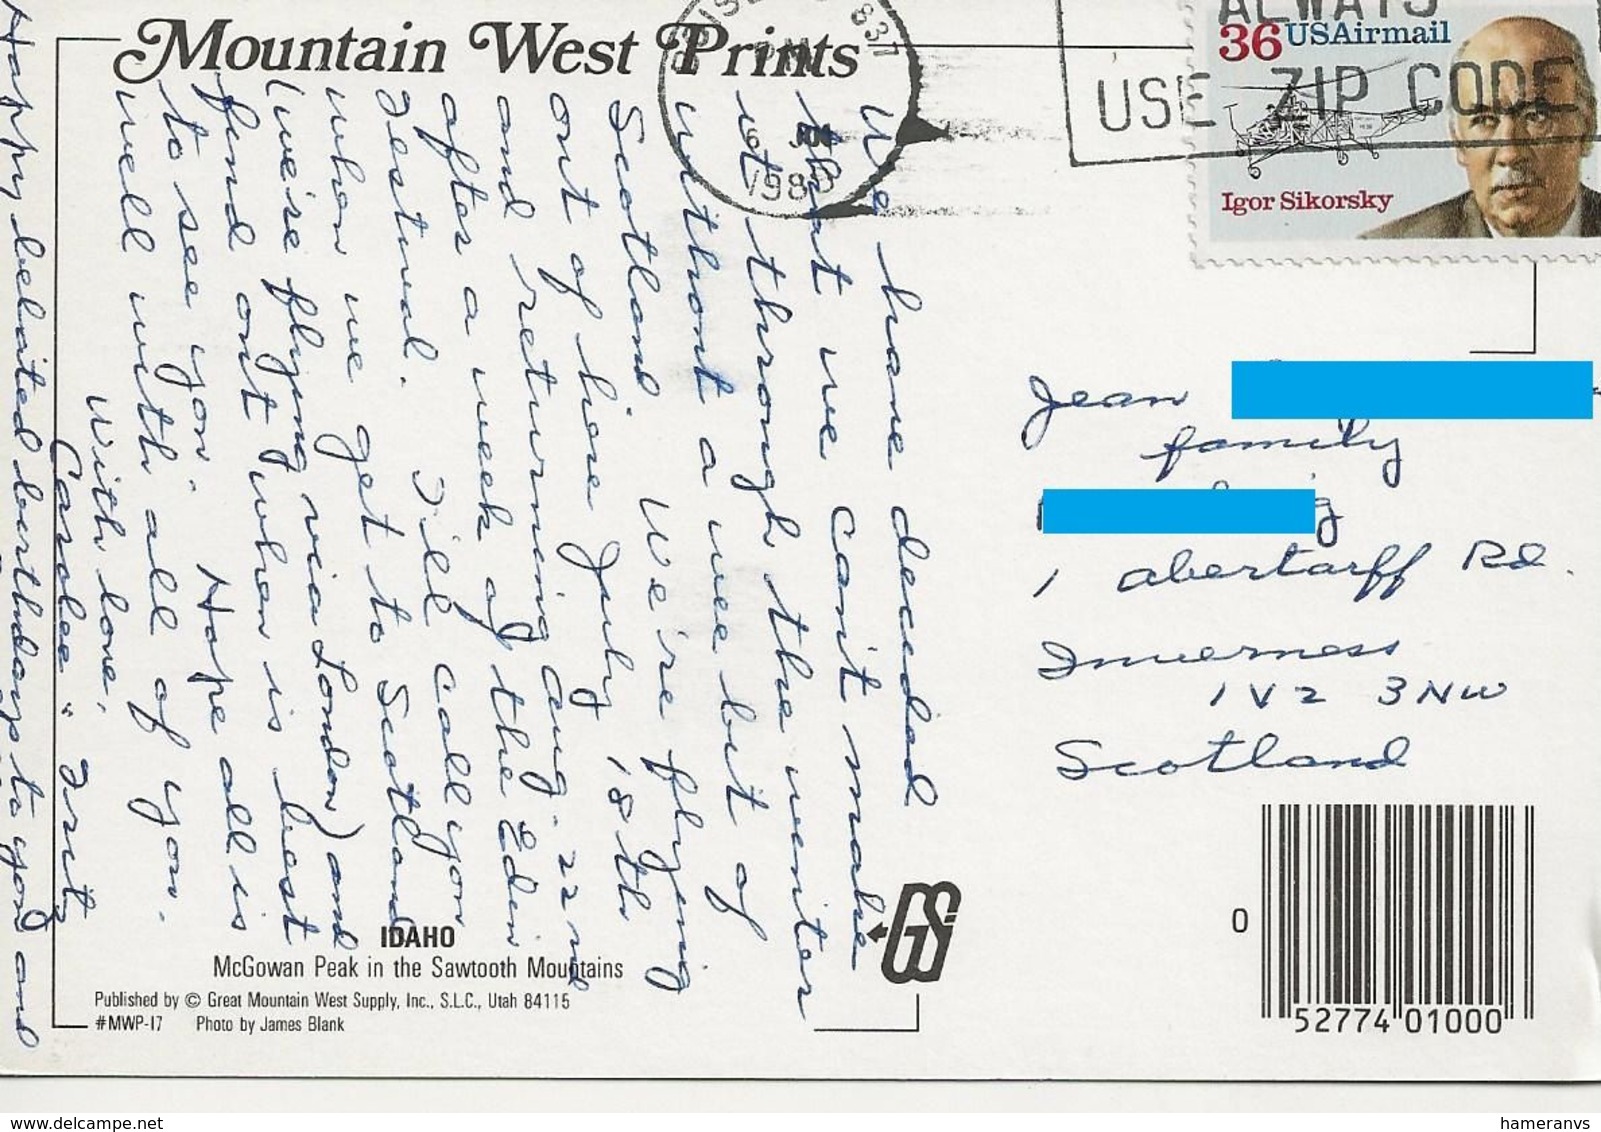 Mountain West Prints
ALWAYS
USE ZIP CODE
837
6 JUN
1988
36 USAirmail
Igor Sikorsky
We have decided
that we can't make
it through the winter
without a wee bit of
Scotland. We're flying
out of here July 18th
and returning Aug. 22nd
after a week of the Edin
Festival. I'll call you
when we get to Scotland
(we're flying via London) and
find out when is best
to see you. Hope all is
well with all of you.
With love,
Carolee & Fritz
Happy belated birthday to you and
Jean
family
1 Abertarff Rd.
Inverness
IV2 3NW
Scotland
GS
IDAHO
McGowan Peak in the Sawtooth Mountains
Published by © Great Mountain West Supply, Inc., S.L.C., Utah 84115
#MWP-17 Photo by James Blank
0
52774 01000
www.delcampe.net
hameranvs